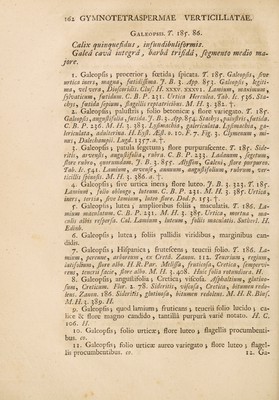 162 GYMNOTETRASPERMAE VERTICILLATAE.
GALEOPSIS. T. 185. 86.
Calix quinquefidus, infundibuliformis.
Galea cava integra, barba trifida, segmento medio ma-
jore.
1. Galeopsis; procerior; foetida; spicata. T. 185. Galeopsis, sive
urtica iners, magna, foetidissima. J. B. 3. App. 853. Galeopsis, legiti-
ma, vel vera, Dioscoridis. Clus. H. XXXV. XXXVI. Lamium, maximum,
sylvaticum, foetidum. C. B. P. 231. Urtica Herculea. Tab. Ic. 536. Sta-
chys, foetida sepium, flagellis repentricibus. M. H. 3. 382. †.
2. Galeopsis; palustris; folio betonicae; flore variegato. T. 185.
Galeopsis, angustifolia, foetida. J. B. 3. App. 854. Stachys, palustris, foetida.
C. B. P. 236. M. H. 3. 382.
3. Galeopsis; patula segetum; flore purpurascente. T. 185. Side-
ritis, arvensis, angustifolia, rubra. C. B. P. 233. Ladanum, segetum,
flore rubro, J. B. 3. 855.
Tab. Ic. 541. Lamium, arvense, annuum, angustifolium, rubrum, ver-
M. H. 3. 386. a. †.
4. Galeopsis; sive urtica iners; flore luteo. J. B. 3. 323. T. 185.
Lamium, folio oblongo, luteum. C. B. P. 231. M. H. 3. 385. Urtica,
iners, tertia, sive lamium, luteo flore. Dod. p. 153. †.
5. Galeopsis, lutea; amplioribus foliis, maculatis. T. 186. La-
mium maculatum. C. B. P. 231. M. H. 3. 385. Urtica, mortua, ma-
Lamium, luteum, foliis maculatis. Sutherl. H.
Edinb.
6. Galeopsis, lutea; foliis pallidis viridibus, marginibus can-
didis.
7. Galeopsis, Hispanica; frutescens; teucrii folio. T. 186. La-
mium, perenne, arboreum, ex Creta. Zanon. 112. Teucrium, regium,
latifolium, flore albo. H. R. Par. Melissa, fruticosa, Cretica, sempervi-
rens, teucrii facie, flore albo. M. H. 3. 408. Hujus folia redundant. c.
8. Galeopsis; angustifolia; Cretica; viscosa.
Creticum. Flor. 2. 78. Sideritis, viscosa, Cretica, bitumen redo-
lens. Zanon. 186 Sideritis, glutinosa, bitumen redolens. M. H. R. Blaes.
M. H. 3. 389. H.
9. Galeopsis; quod lamium; fruticans; teucrii folio lucido; ca-
lice & flore magno candido, tantilla purpura varie notato. H. C.
106. H.
10. Galeopsis, folio urticae; flore luteo; flagellis procumenti-
bus. cr.
11. Galeopsis, folio urticae aureo variegato; flore luteo; flagel-
lis procumbentibus. cr.
12. Ga-